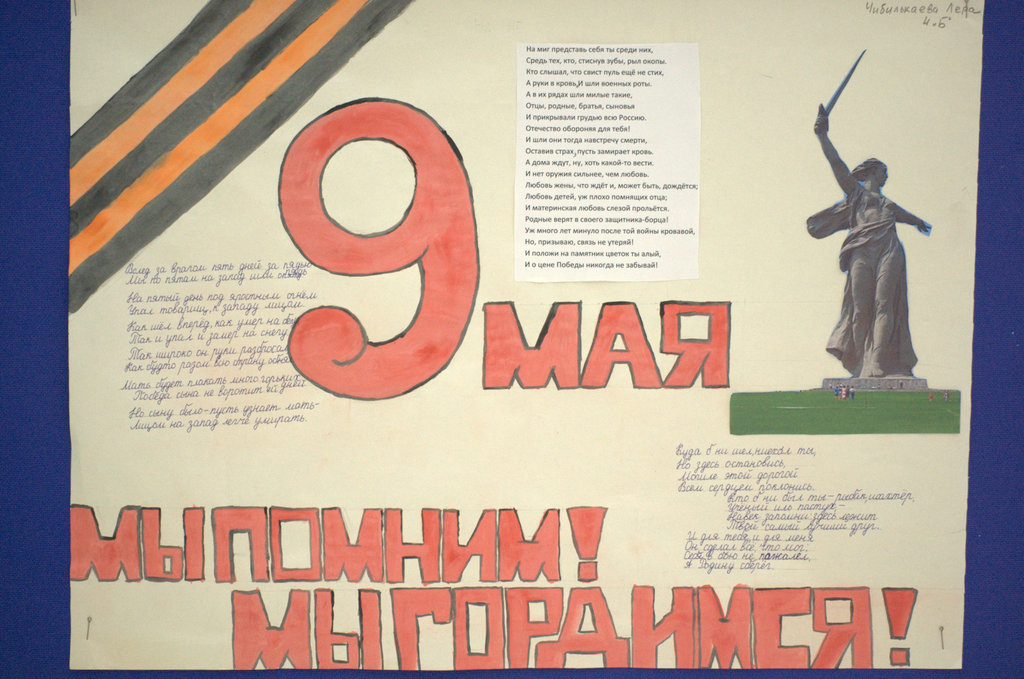 Чибилькаева Лера
4 "Б"
На миг представь себя ты среди них,
Средь тех, кто, стиснув зубы, рыл окопы.
Кто слышал, что свист пуль ещё не стих,
А руки в кровь, И шли военных роты.
А в их рядах шли милые такие,
Отцы, родные, братья, сыновья
И прикрывали грудью всю Россию.
Отечество обороняя для тебя!
И шли они тогда навстречу смерти,
Оставив страх, пусть замирает кровь.
А дома ждут, ну, хоть какой-то вести.
И нет оружия сильнее, чем любовь.
Любовь жены, что ждёт и, может быть, дождётся;
Любовь детей, уж плохо помнящих отца;
И материнская любовь слезой прольётся.
Родные верят в своего защитника-борца!
Уж много лет минуло после той войны кровавой,
Но, призываю, связь не утеряй!
И положи на памятник цветок ты алый,
И о цене Победы никогда не забывай!
9 МАЯ
Вслед за врагом пять дней за пядью
пядь
Мы по пятам на запад шли опять.
На пятый день под яростным огнём
Упал товарищ, к западу лицом.
Как шёл вперёд, как умер на бегу
Так и упал и замер на снегу.
Так широко он руки разбросал
Как будто разом всю страну обнял
Мать будет плакать много горьких
дней
Победа сына не воротит ей
Но сыну было - пусть узнает мать -
Лицом на запад легче умирать.
Куда б ни шёл, ни ехал ты,
Но здесь остановись,
Могиле этой дорогой
Всем сердцем поклонись.
Кто б ни был ты - рыбак, шахтёр,
Учёный иль пастух, -
Навек запомни: здесь лежит
Твой самый лучший друг.
И для тебя, и для меня
Он сделал всё, что мог:
Себя в бою не пожалел,
А Родину сберёг.
МЫ ПОМНИМ!
МЫ ГОРДИМСЯ!